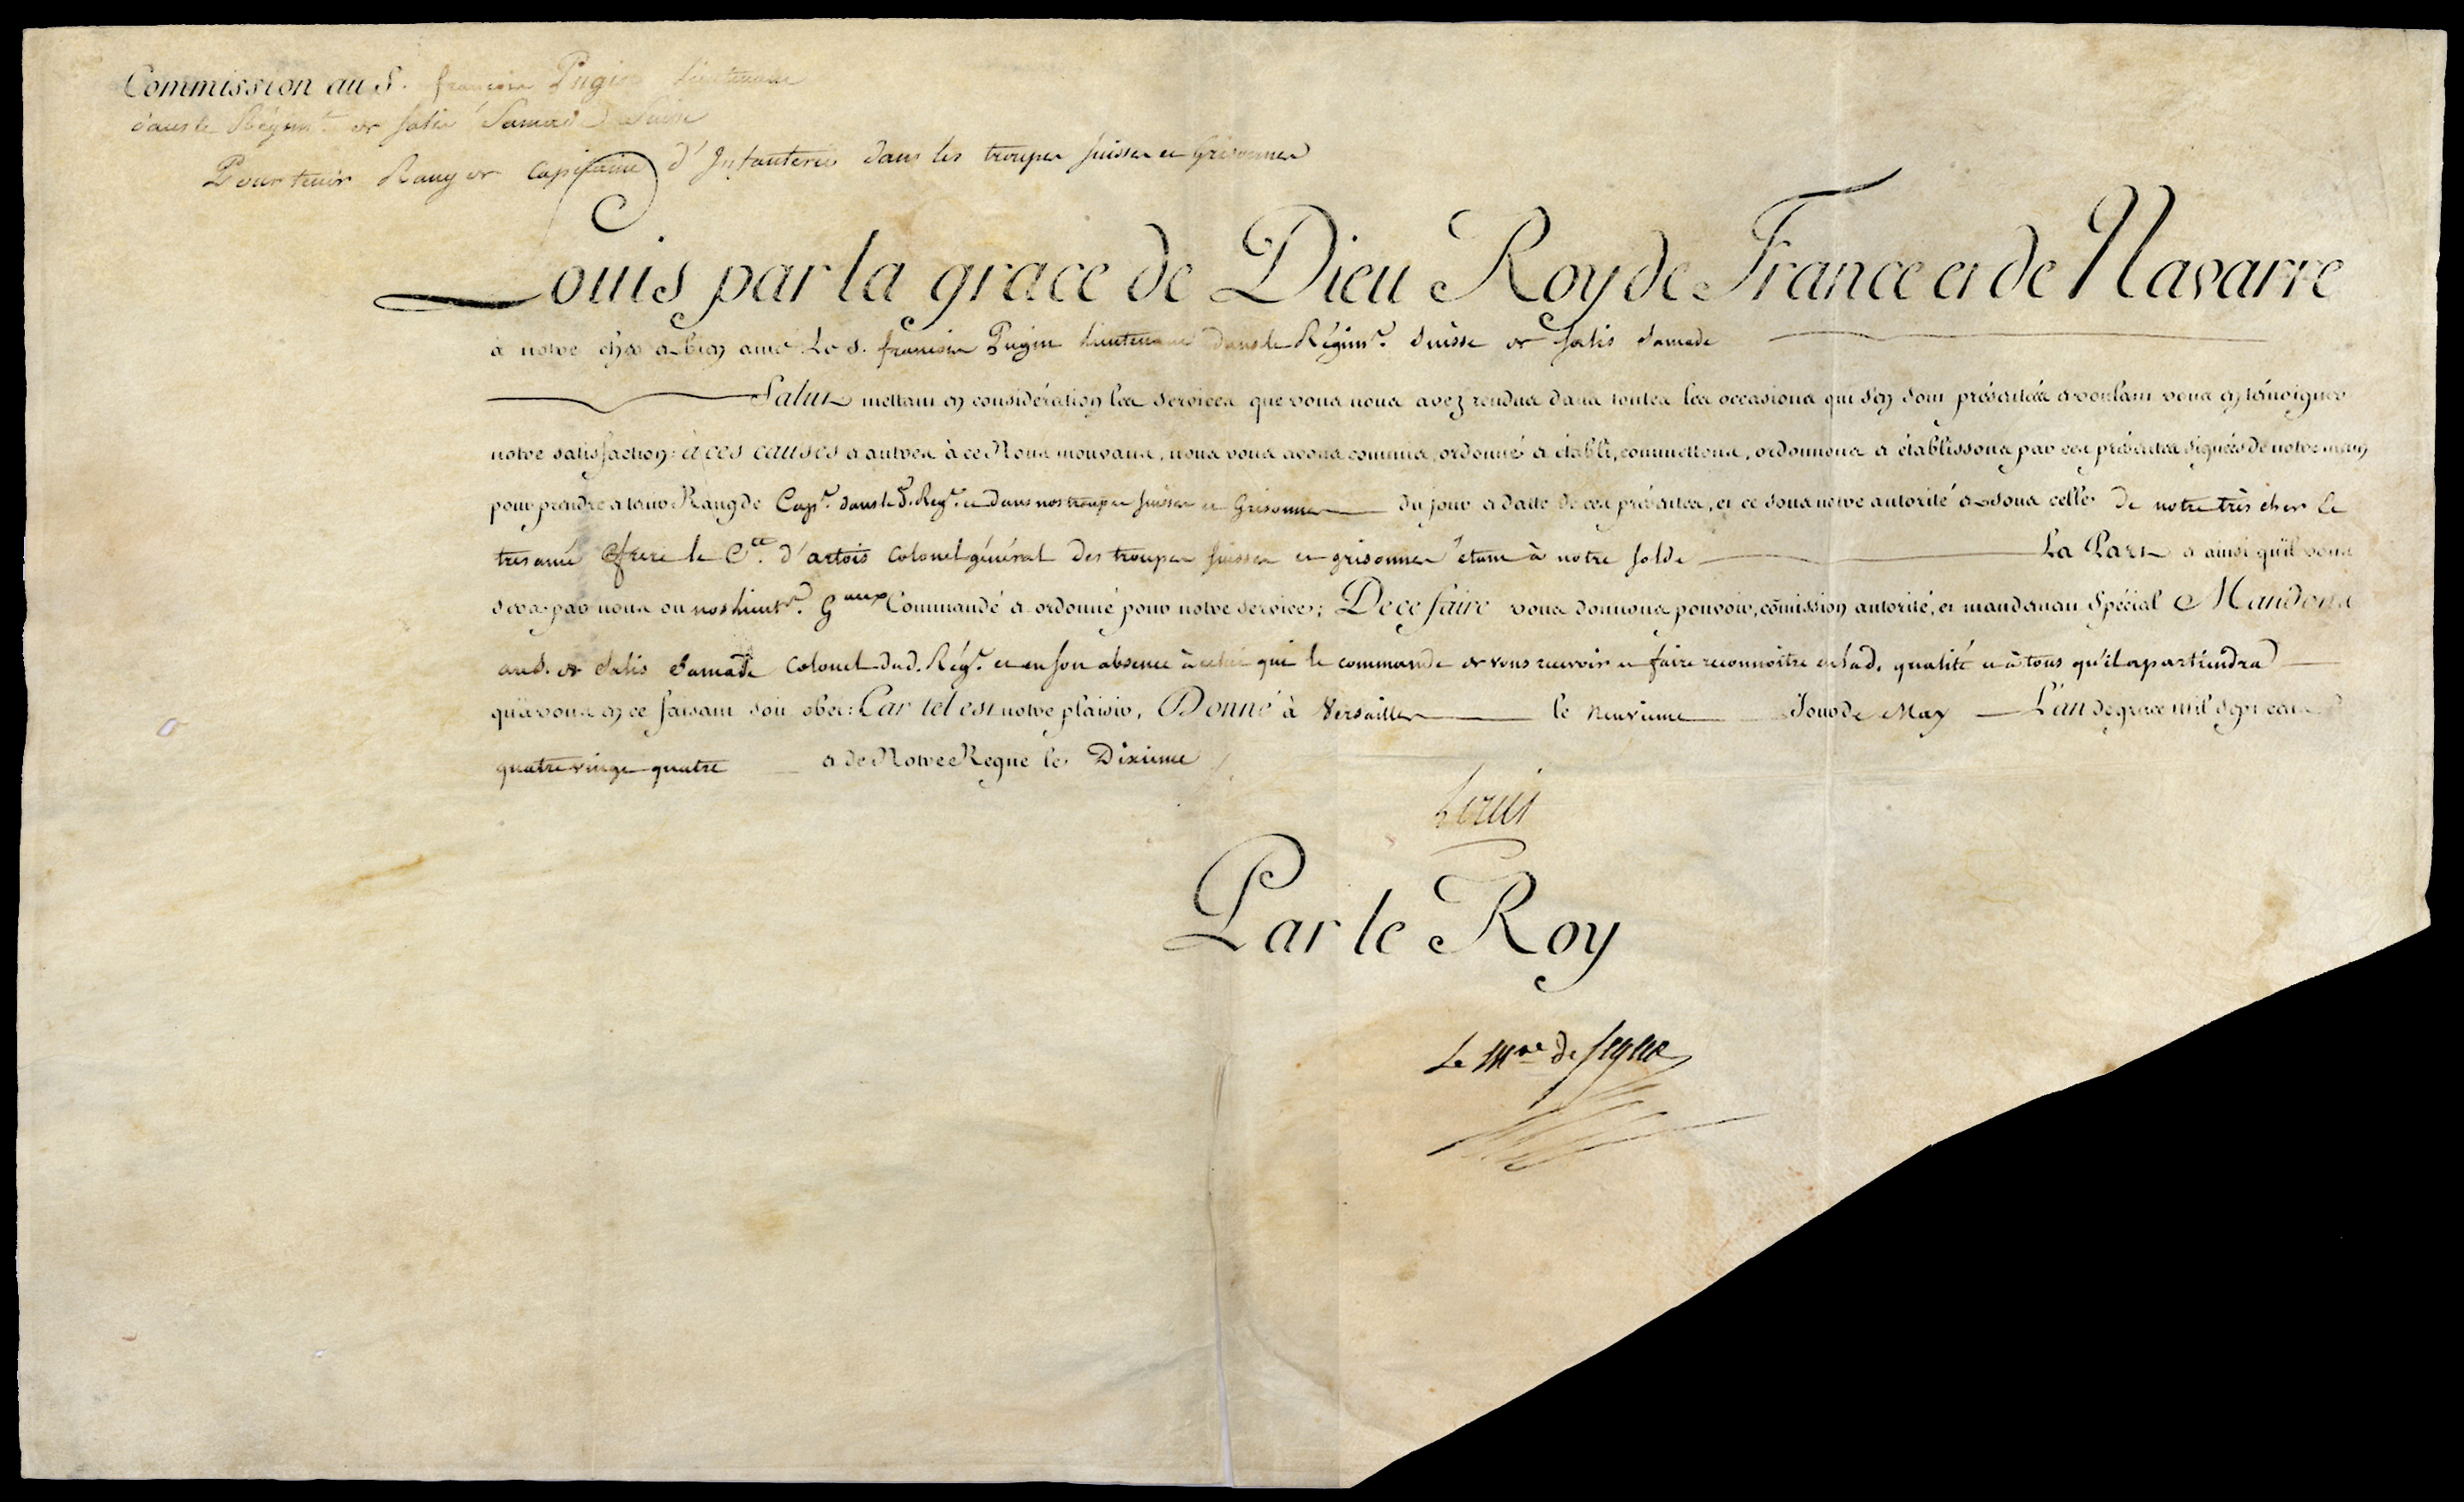 Commission au S. françois Pugin Lieutenant
dans le Régimt. de Salis Samade Suisse
Pour tenir Rang de Capitaine d'Infanterie dans les troupes suisses et Grisonnes
Louis par la grace de Dieu Roy de France et de Navarre
à notre cher et bien amé Le S. françois Pugin Lieutenant dans le Régimt. Suisse de Salis Samade
Salut mettant en considération les services que vous nous avez rendus dans toutes les occasions qui s'en sont présentées et voulant vous en témoigner
notre satisfaction: à ces causes et autres à ce Nous mouvans, nous vous avons commis, ordonné et établi, commettons, ordonnons et établissons par ces présentes signées de notre main
pour prendre et tenir Rang de Capne. dans led. Regt. et dans nos troupes suisses et Grisonnes du jour et datte de ces présentes, et ce sous notre autorité et sous celle de notre très cher et
tres amé frere le Cte. d'artois Colonel général des troupes suisses et grisonnes étant à notre solde La Part et ainsi qu'il vous
sera par nous ou nos Lieuts. Gaux Commandé et ordonné pour notre service; De ce faire vous donnons pouvoir, com̃ission, autorité, et mandement Spécial Mandons
au S. de Salis Samade Colonel dud. Régt. et en son absence à celui qui le commande de vous recevoir et faire reconnoitre en lad. qualité et à tous qu'il apartiendra
qu'à vous en ce faisant soit obéi: Car tel est notre plaisir. Donné à Versailles le neuvieme Jour de May L'an de grace mil sept cent
quatre vingt quatre et de Notre Regne le Dixieme
Louis
Par le Roy
Le Mal de Segur